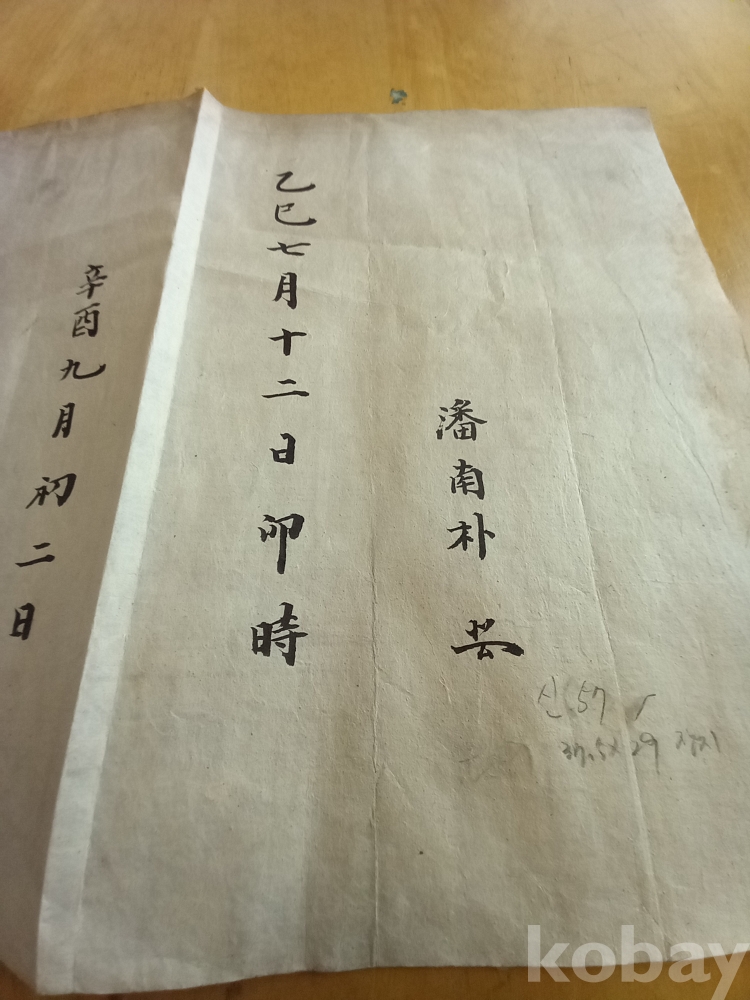 潘南朴 芸
乙巳七月十二日卯時
辛酉九月初二日
신.57
37.5×29
kobay